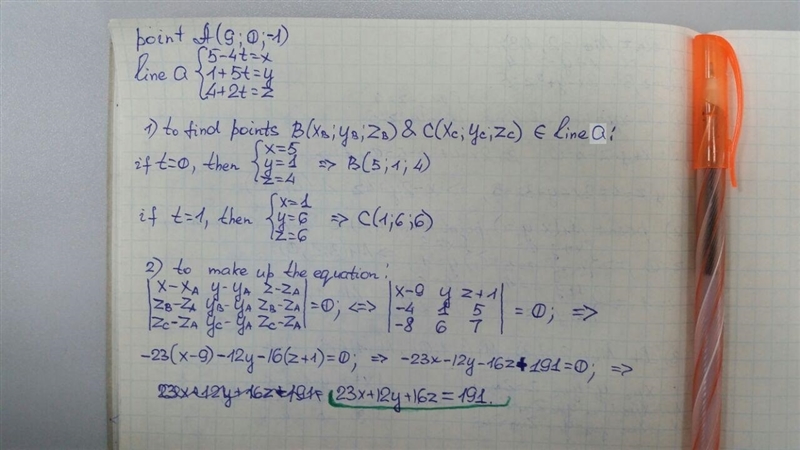 point A(9; 0; -1)
line a { 5-4t=x
1+5t=y
4+2t=z
1) to find points B(xB; yB; zB) & C(xC; yC; zC) ∈ line a:
if t=0, then { x=5
y=1
z=4 => B(5; 1; 4)
if t=1, then { x=1
y=6
z=6 => C(1; 6; 6)
2) to make up the equation:
| x-xA y-yA z-zA |
| zB-zA yB-yA zB-zA | =0; <=>
| zC-zA yC-yA zC-zA |
| x-9 y z+1 |
| -4 1 5 | = 0; =>
| -8 6 7 |
-23(x-9)-12y-16(z+1)=0; => -23x-12y-16z+191=0; =>
23x+12y+16z+191= 23x+12y+16z=191.